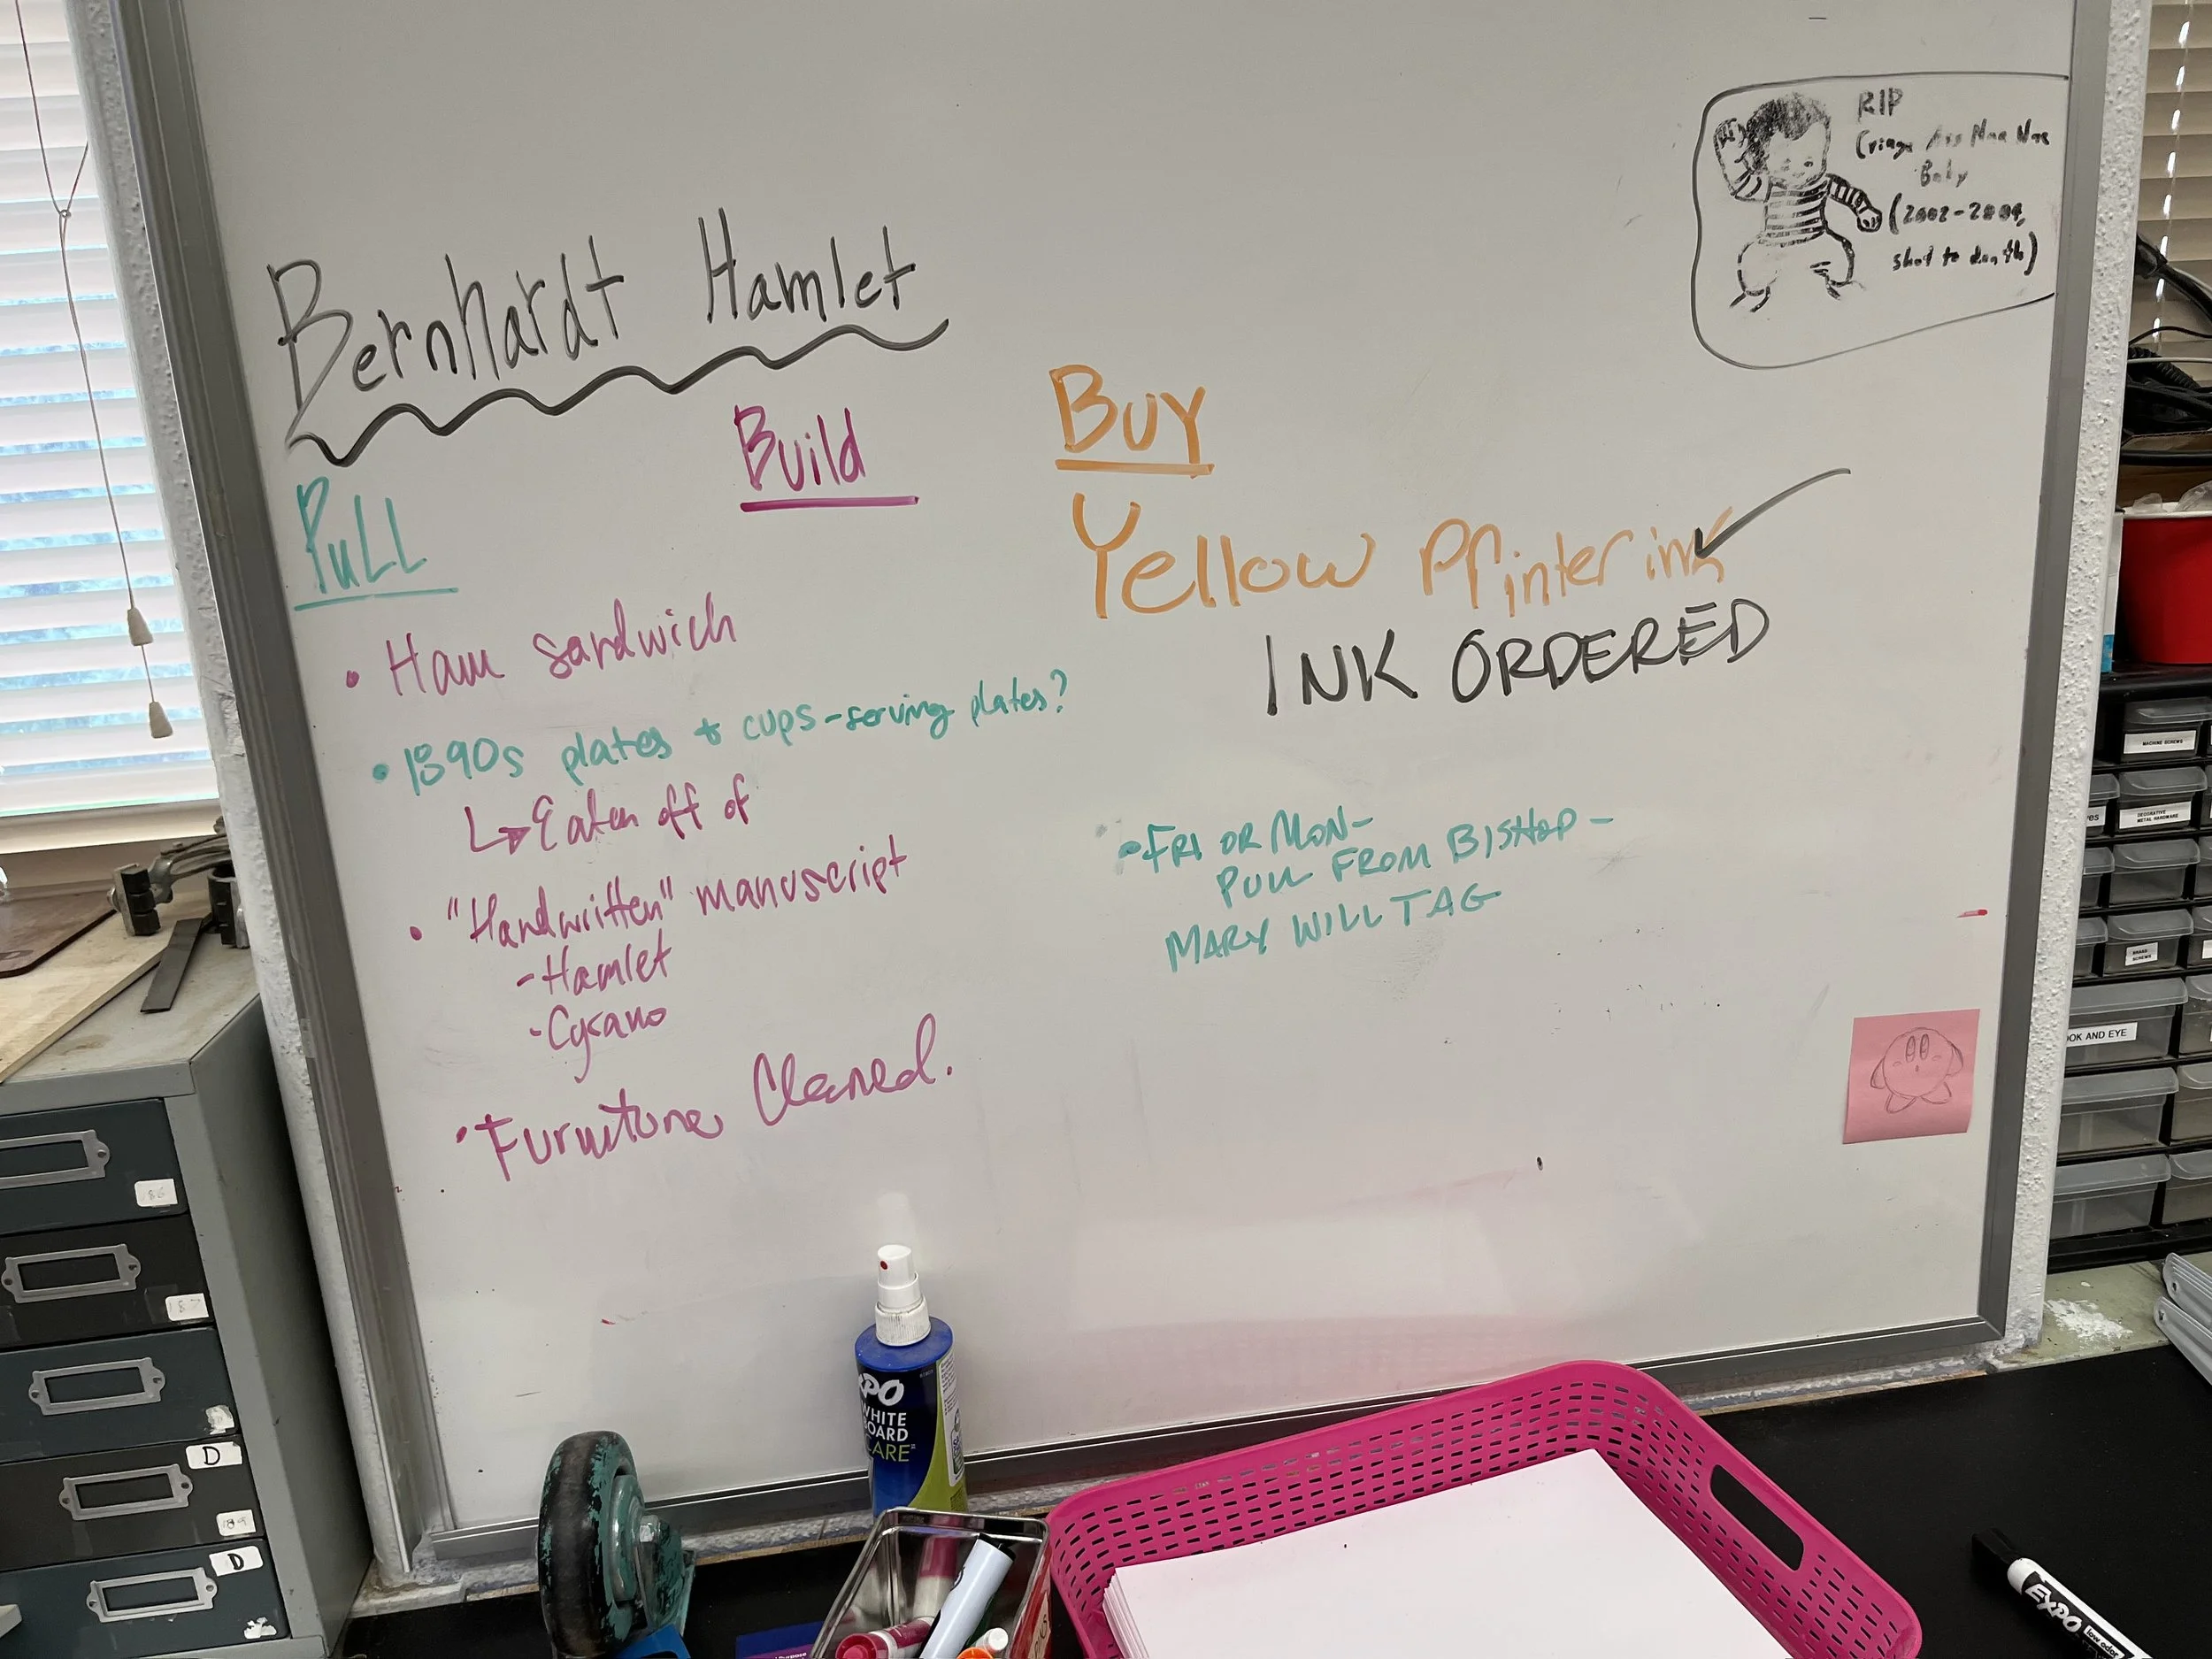 Bernhardt Hamlet
RIP
Cringe Ass Nae Nae
Baby
(2002-2009,
shot to death)
Pull
• Ham sandwich
• 1890s plates + cups-serving plates?
↳ Eaten off of
• "Handwritten" manuscript
- Hamlet
- Cyrano
• Furniture Cleaned.
Build
BUY
Yellow Printer ink ✓
INK ORDERED
• FRI OR MON-
PULL FROM BISHOP-
MARY WILL TAG
MACHINE SCREWS
DECORATIVE
METAL HARDWARE
BRASS
SCREWS
OOK AND EYE
186
187
D
189
D
XPO
WHITE
BOARD
CARE
EXPO
low odor